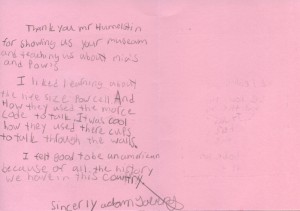 Thank you mr
for showing us your museum
and teaching us about mia's
and Pow's
I liked learning about
the life size pow cell And
How they used the morce
code to talk. It was cool
how they used there cups
to talk through the walls
I felt good to be an american
because of all the history
we have in this country
Sincerly